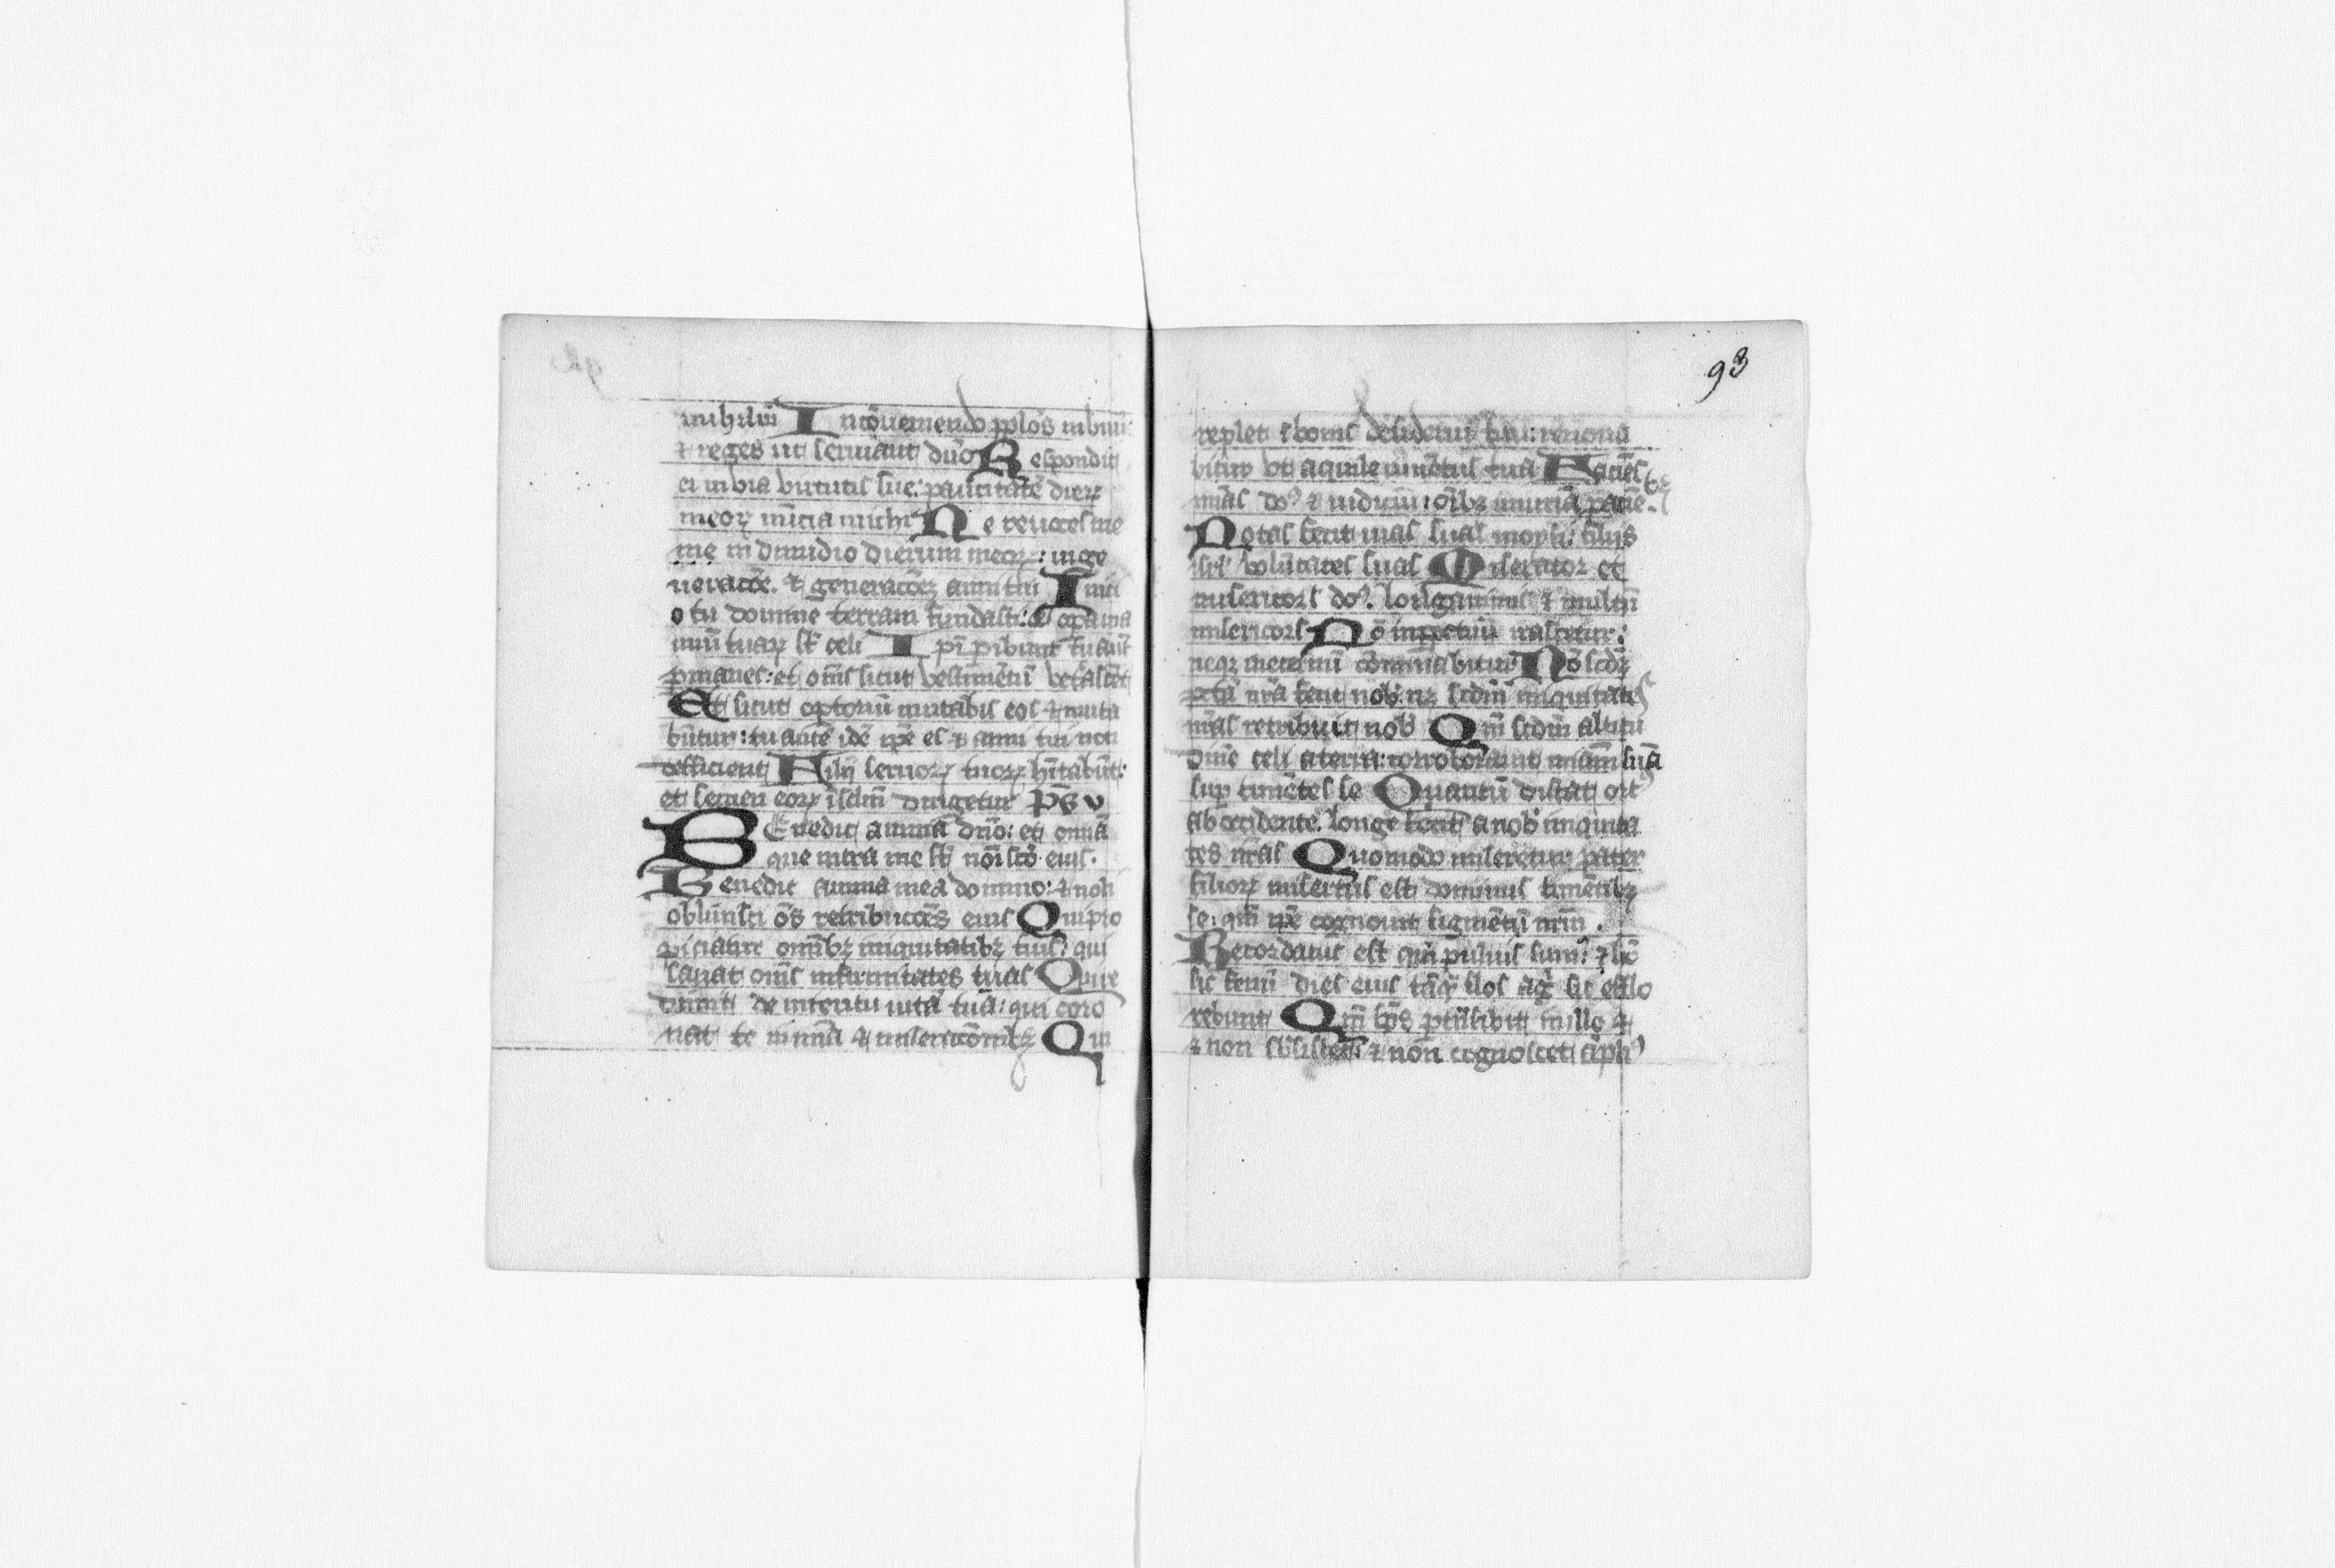 in hilm̄ In cōueniendo pplōs in bnuū:
⁊ reges ut seruiant dūo Respondit
ei in via virtutis sue: paucitatē dierꝝ
meorꝝ nūcia michi Ne reuoces me
me in dimidio dierum meorꝝ: in ge
neracōe. ⁊ generacōeꝫ anni tui Inici
o tu domine terram fundasti: ⁊ opa ma
nuū tuarꝝ st̄ celi Ipī pibunt tu aut̄
pmanes: et om̄s sicut vestimētū vetasc̄et
Et sicut optoriū mutabis eos ⁊ muta
būtur: tu autē idē ip̄e es ⁊ anni tui non
defficient Filij seruorꝝ tuorꝝ hītabūt:
et semen eorꝝ ī sclm̄ dirigetur Ps̄ v
BEnedic anima dn̄o: et omīa
que intra me st̄ nōi scō eius.
Benedic anima mea domino: ⁊ noli
obliuisci ōs retribucōēs eius Qui pro
piciatur omībꝫ iniquitatibꝫ tuis: qui
sanat om̄s infirmitates tuas Qui re
dimit de interitu uitā tuā: qui coro
nat te in mīa ⁊ misericōnibꝫ Qui
93
replet ī bonis desideriū tuū: renoua
bitur ut aquile iuuētus tua Faciēs
mīas do⁹ ⁊ iudiciū: oībꝫ iniuriā paciē-
tibꝫ
Notas fecit uias suas moysi: filiis
isrl' volūtates suas Miserator et
misericors do⁹. longanimis ⁊ multū
misericors Nō in ppetuū irascetur:
neqꝫ in eternū cōminabitur Nō scdꝫ
pctā nrā fecit nob: nꝫ scdm̄ iniquitates
nrās retribuit nob' Qm̄ scdm̄ altitu
dinē celi a terra: corroborauit miam suā
sup timētes se Quantū distat ort⁹
ab occidente. longe fecit a nob' iniquita
tes nrās Quomodo miseretur pater
filiorꝝ misertus est dominus timētibꝫ
se: qm̄ ip̄e cognouit figmētū nrm̄.
Recordatus est qm̄ puluis sum⁹: hō
sic̄ fenū dies eius tāq̄ flos ag̊ sic efflo
rebunt Qm̄ sps̄ ptāsibit in illo ⁊
⁊ non sb'sistet: ⁊ non cognoscet āpli⁹